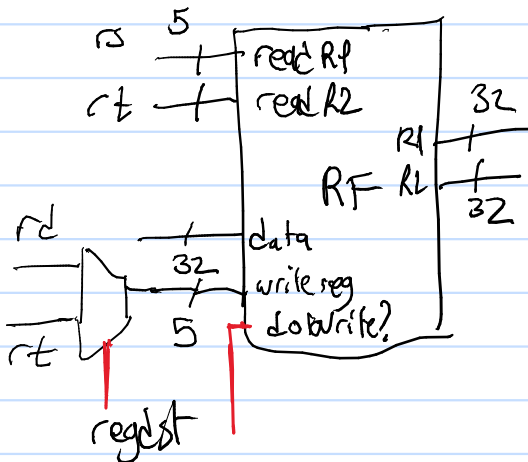 rs 5 readR1
rt readR2
32
R1
RF R2
32
rd
data
32
writereg
5 doWrite?
rt
regdst